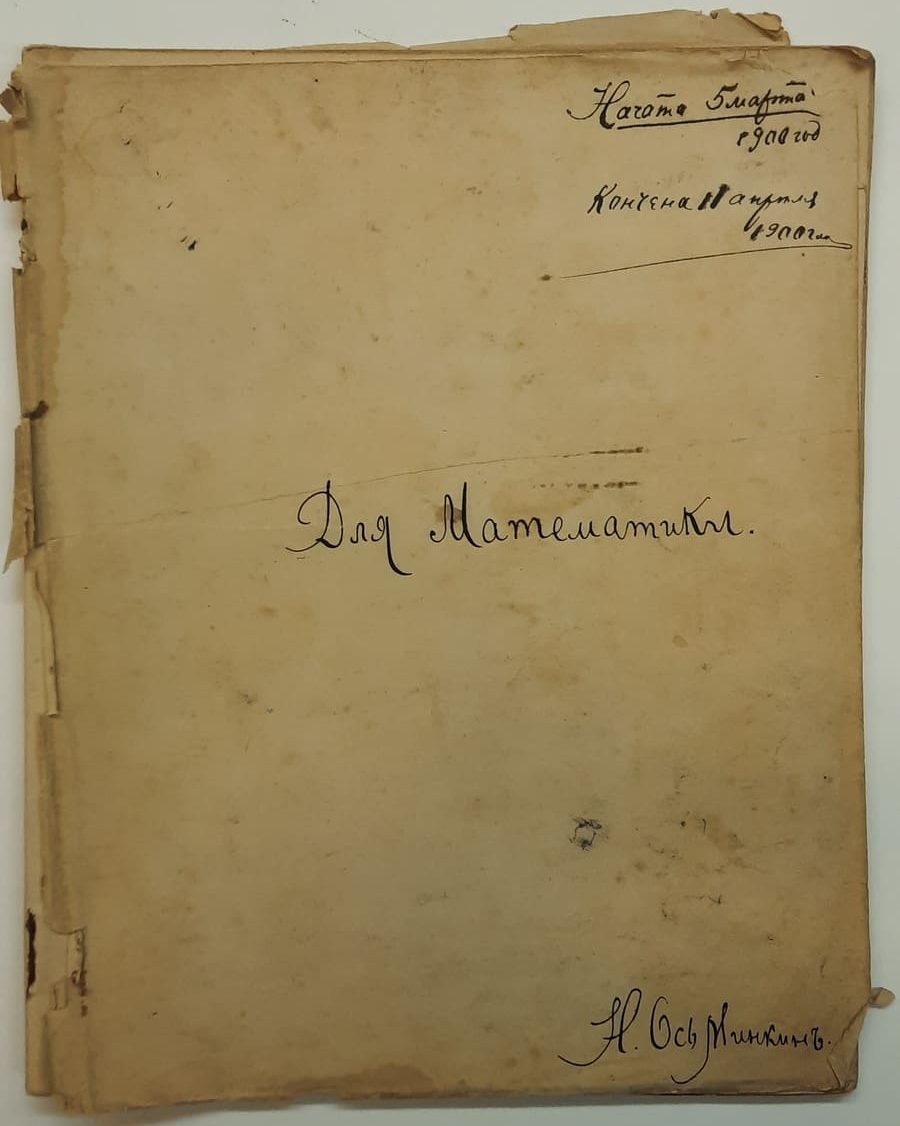 Начата 5 марта
1900 год
Кончена 11 апреля
1900 года
Для Математики.
Н. Осьминкинъ.